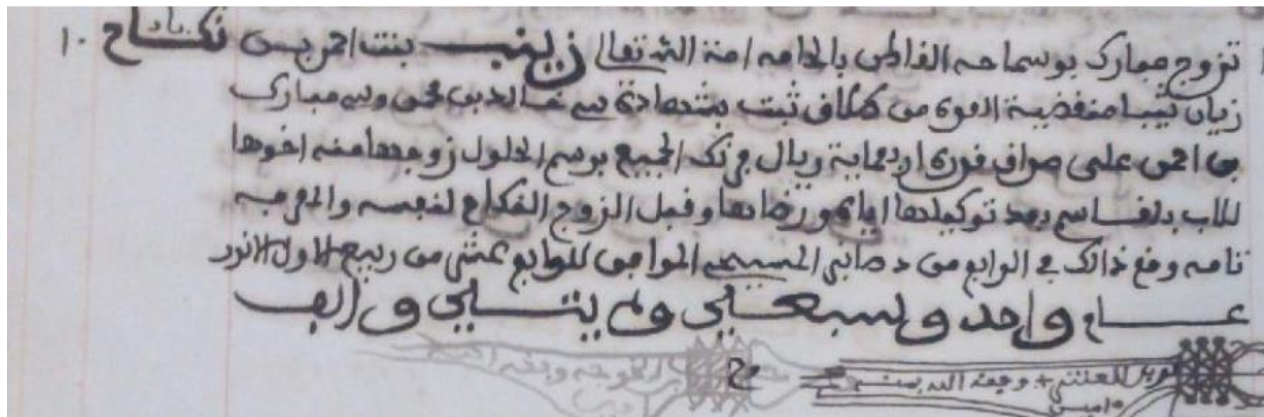 تزوج مبارك بوسماحه القاطن بالحامه امة الله تعالى زينب بنت احمد بن نكاح ١٠
زيان ثيبا منقضية العدة من ثبت بشهادة سي خالد بن محمد وسي مبارك
بن احمد على صداق قدره اربعماية ريال فرنك الجميع برسم الحلول زوجها منه اخوها
للاب بلقاسم بعد توكيلها اياه ورضاها وقبل الزوج النكاح لنفسه والمعرفه
تامه وقع ذالك في الرابع من المسيحي الموافق للرابع عشر من ربيع الاول الانور
عام واحد وسبعين ومايتين والف